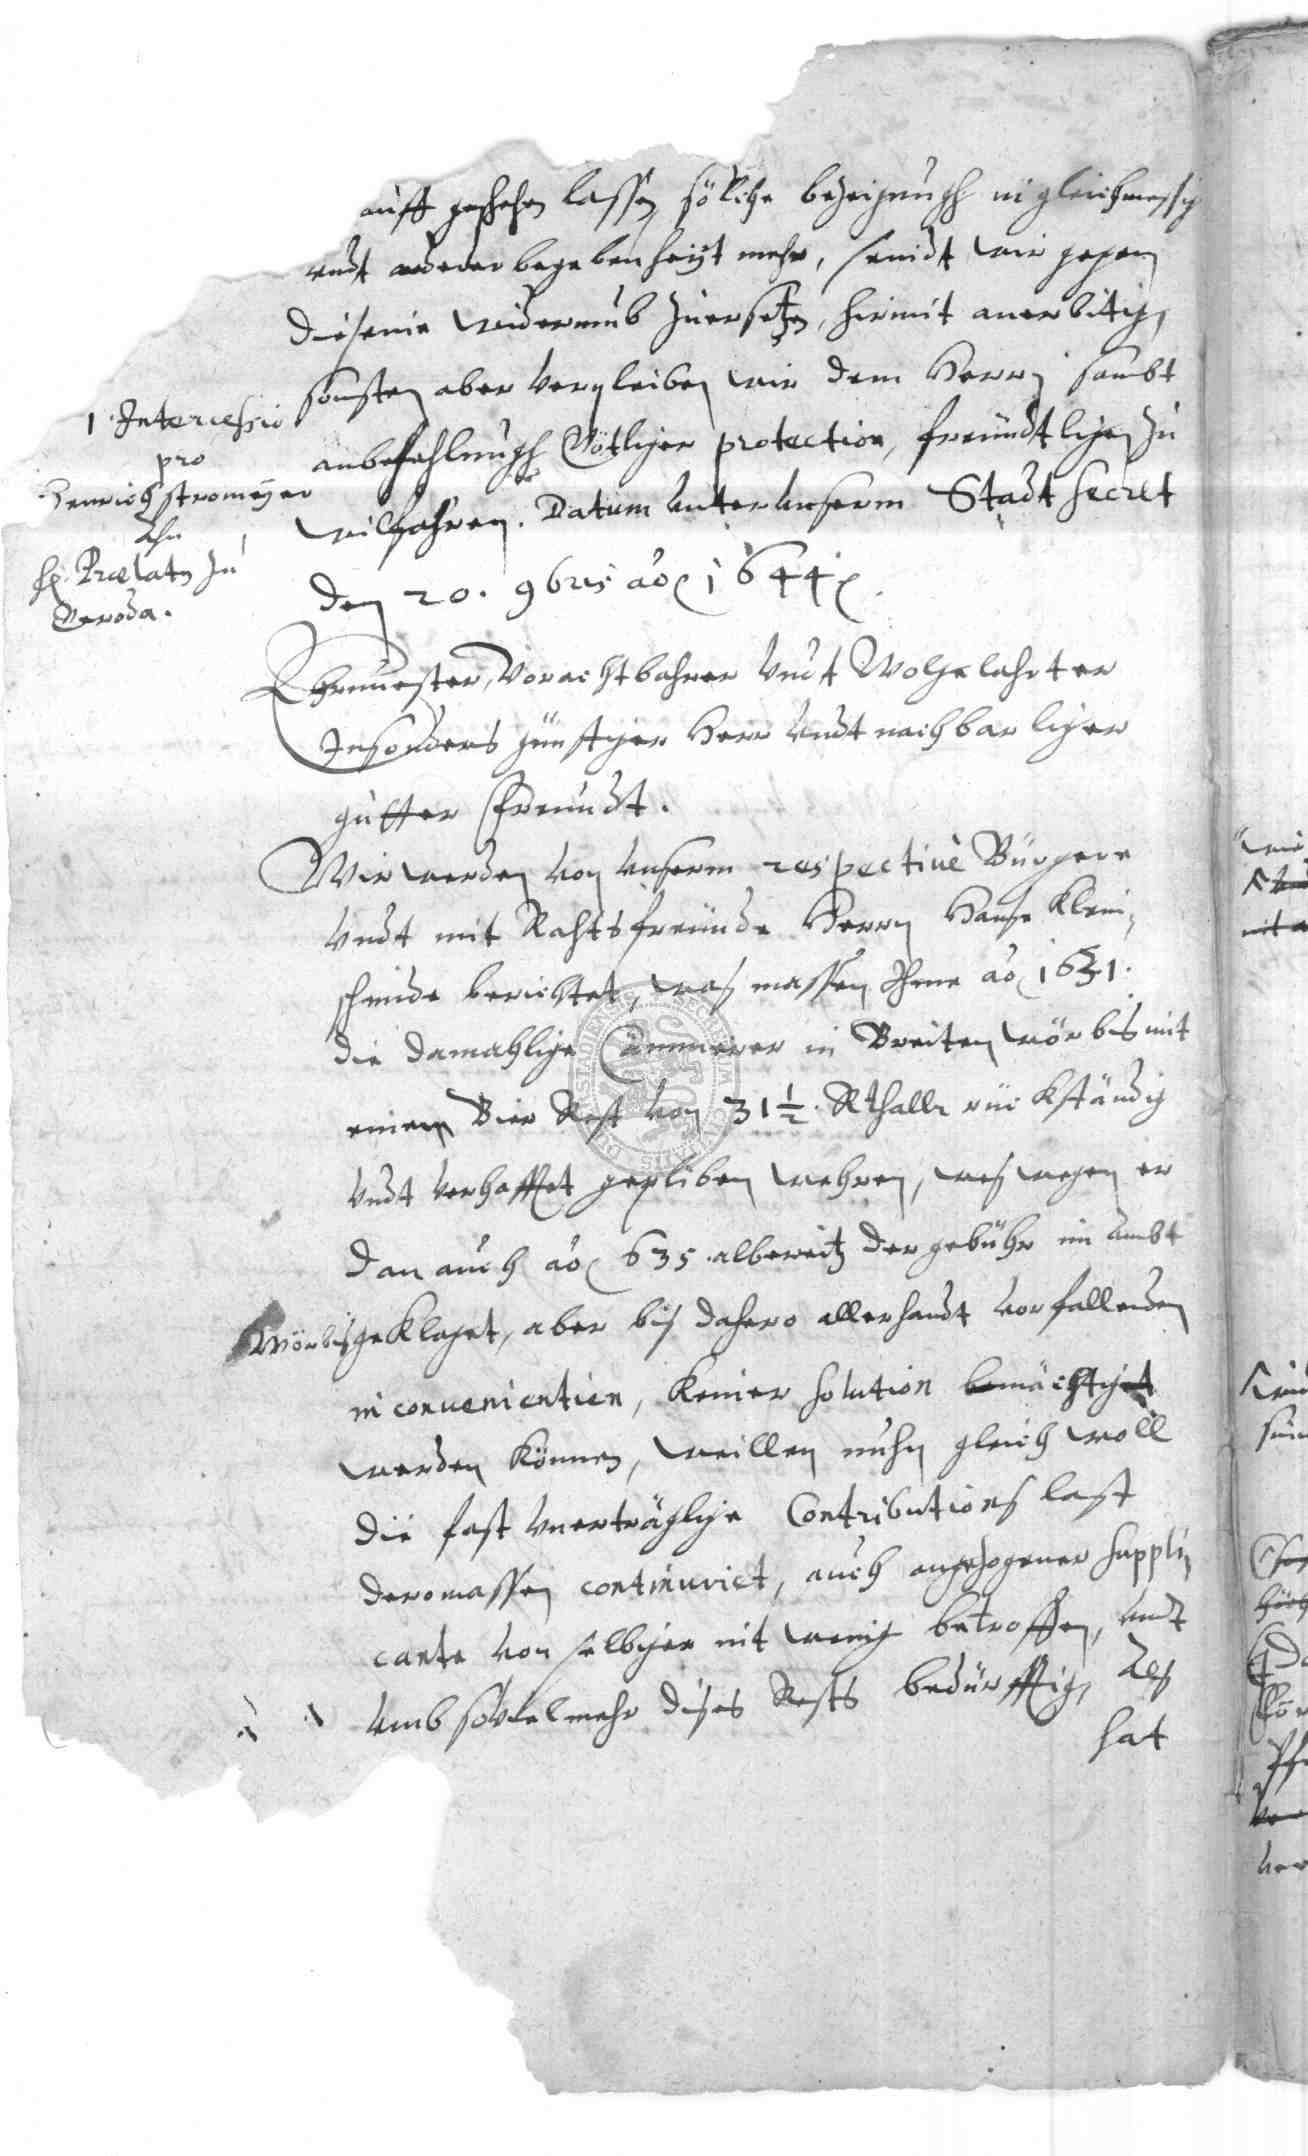 auff geschehen lassen, sölche bezeigungh in gleichmessig
undt anderer begebenheyt mehr, seindt wir gegen
dieselbe widerumb zuersetzen, hirmit anerbötig,
sonsten aber verpleiben wir dem Herrn sambt
anbefehlungh Götliger protection, freundtligen zu
wilfahren. Datum unter unserm Stadt Secret
den 20. 9bris ao 1644
1. Intercessio
pro
Henrich Stromeyer
Ahn
H. Praelatn zu
Geroda.
Ehrnuester, Vorachtbahrer undt Wolgelahrter
Insonders günstiger Herr undt nachbarliger
gutter Freundt.
Wir werden von unserm respectiue Bürgere
undt mit Rahtsfreunde Herrn Hanse Klein
schmide berichtet, was massen Ihme ao 1631.
die damahlige Cämmerer in Breiten wörbis mit
einem Bier Rest von 31 ½. Rthallr rückständig
undt verhafftet gepliben wehren, weswegen er
dan auch ao 635. albereitz der gebühr im Ambt
Wörbis geklaget, aber bis dahero allerhandt vorfallenden
inconuenientien, keiner solution bemächtiget
werden können, weillen nuhn gleichwoll
die fast unerträglige Contributions last
deromassen continuriet, auch angezogener suppli
cante von selbiger nit wenig betroffen, undt
umb sovielmehr dises Rests bedürfftig, Als
hat